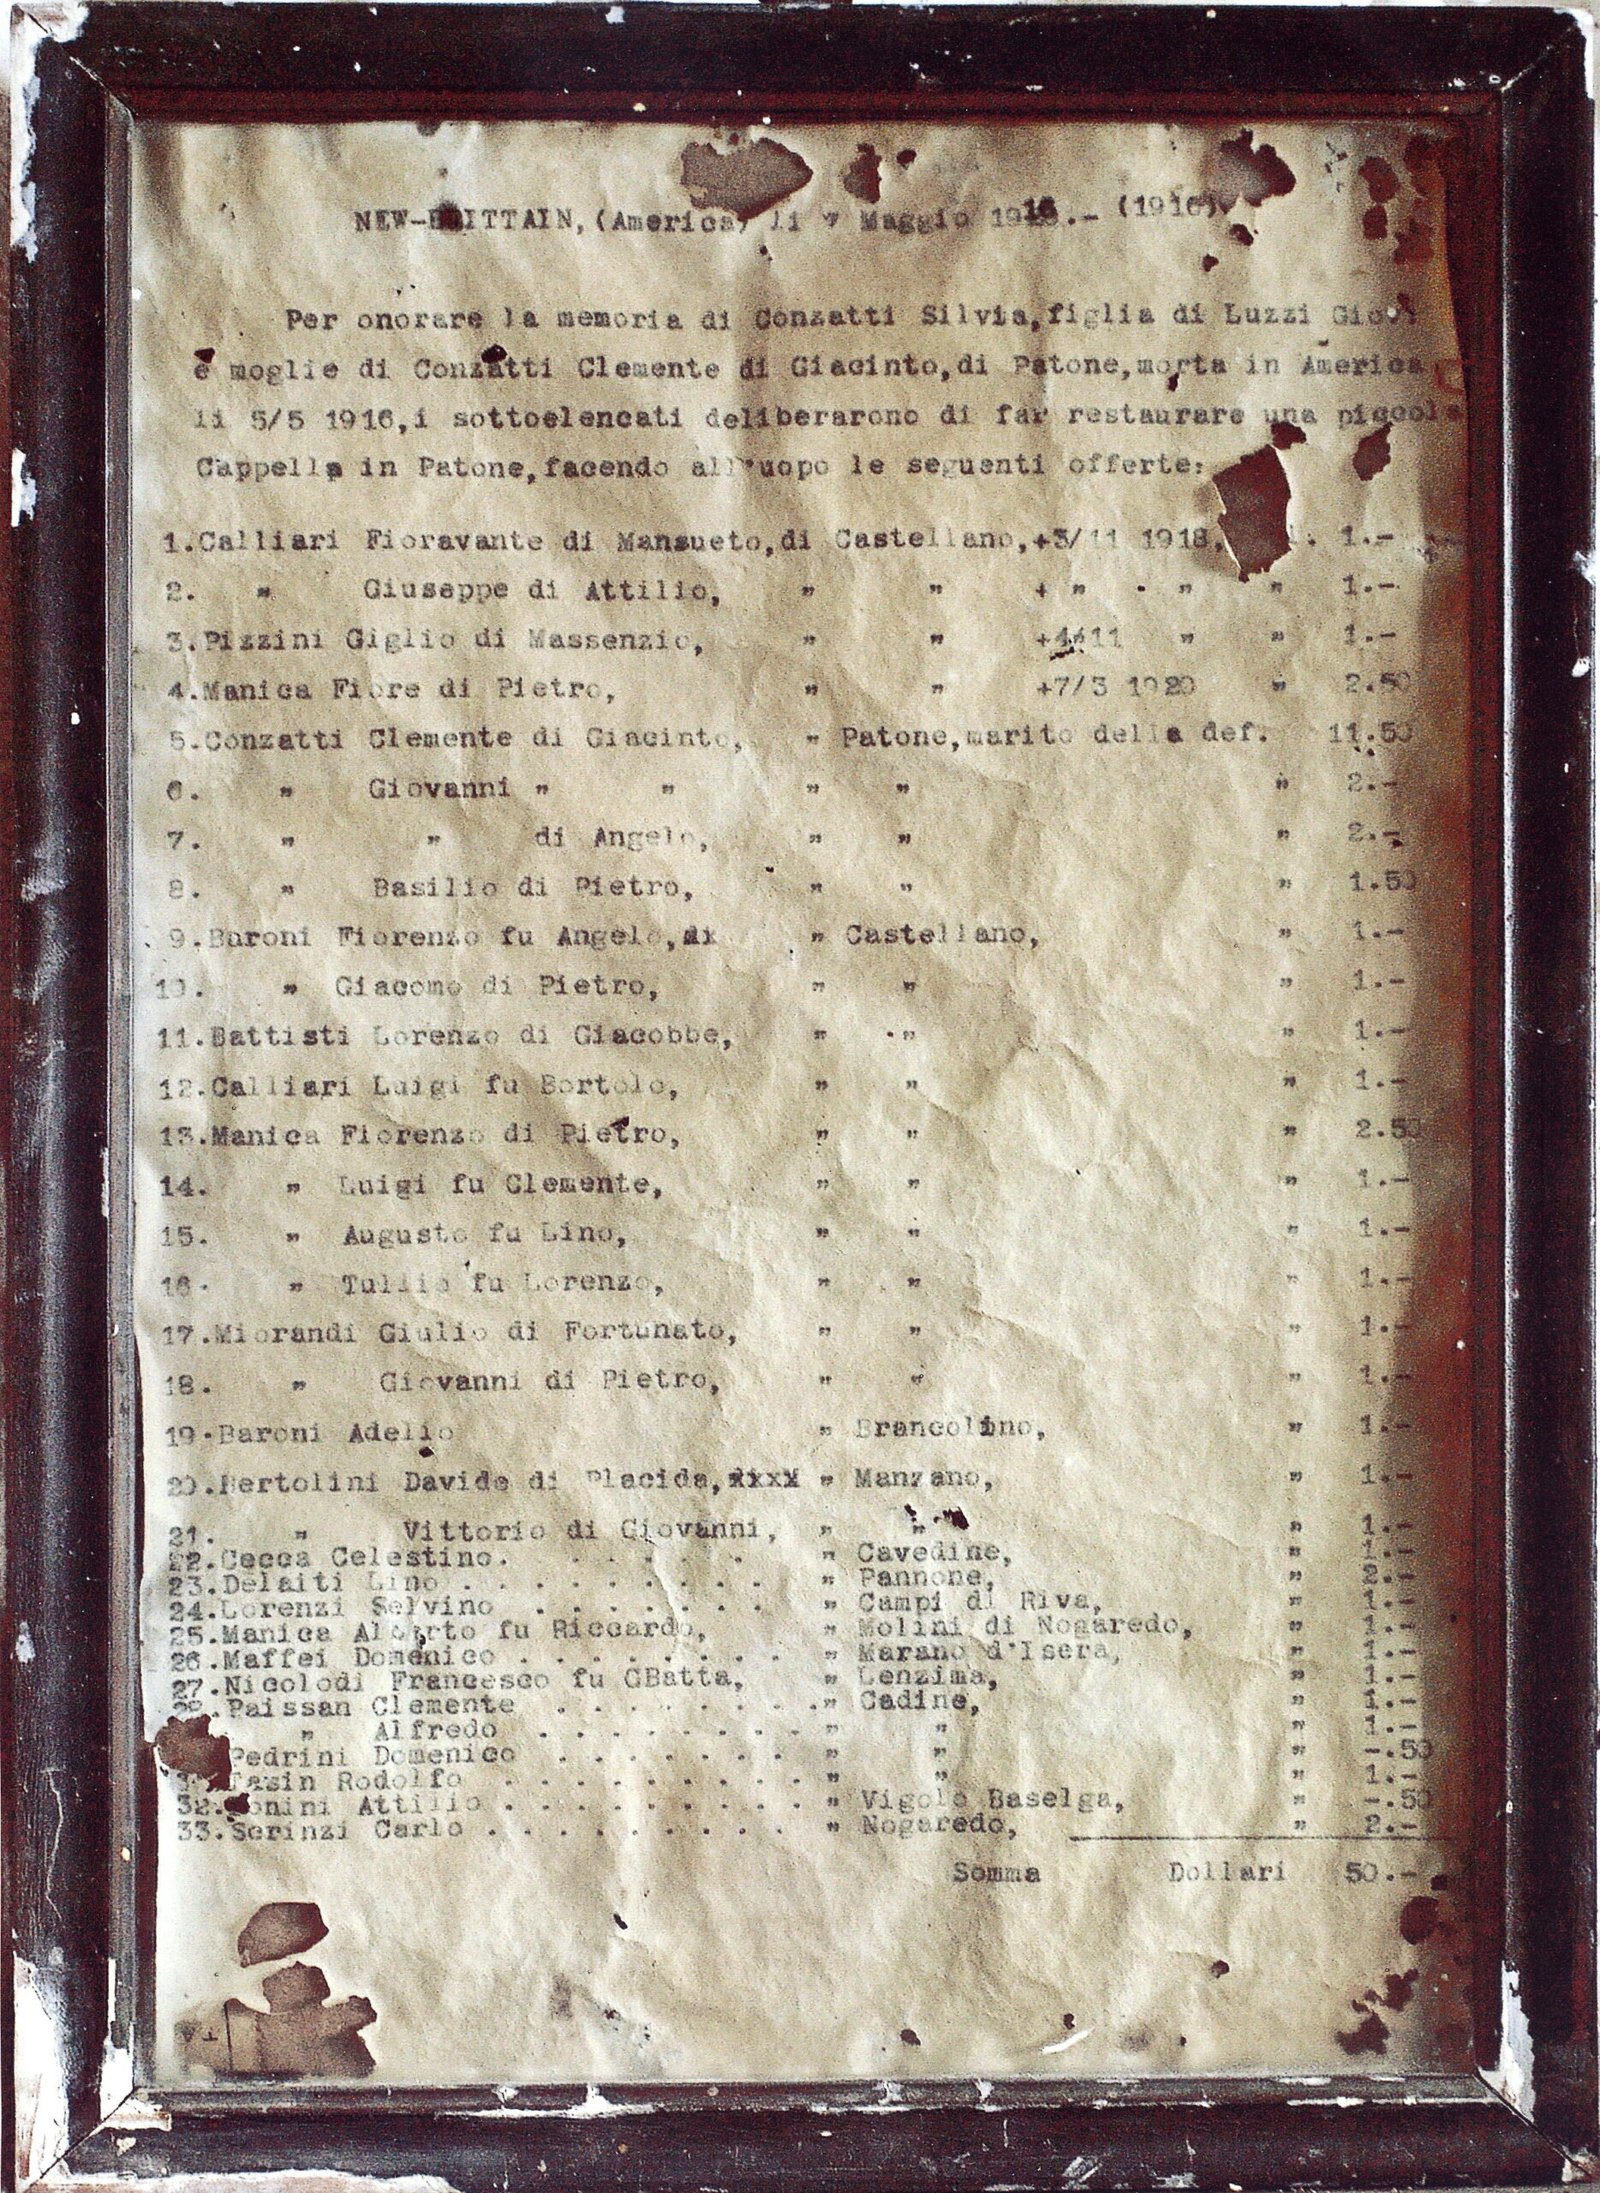 NEW-BRITTAIN, (America) li 7 Maggio 1916.- (1916)
Per onorare la memoria di Conzatti Silvia,figlia di Luzzi
e moglie di Conzatti Clemente di Giacinto,di Patone,morta in America
li 5/5 1916,i sottoelencati deliberarono di far restaurare una piccola
Cappella in Patone,facendo all'uopo le seguenti offerte:
1.Calliari Fioravante di Mansueto,di Castellano,+3/11 1918, 1.-
2. " Giuseppe di Attilio, " " + " " " 1.-
3.Pizzini Giglio di Massenzio, " " +4/11 " " 1.-
4.Manica Fiore di Pietro, " " +7/3 1920 " 2.50
5.Conzatti Clemente di Giacinto, " Patone,marito della def. 11.50
6. " Giovanni " " " " " 2.-
7. " " di Angelo, " " " 2.-
8. " Basilio di Pietro, " " " 1.50
9.Baroni Fiorenzo fu Angelo, " Castellano, " 1.-
10. " Giacomo di Pietro, " " " 1.-
11.Battisti Lorenzo di Giacobbe, " " " 1.-
12.Calliari Luigi fu Bortolo, " " " 1.-
13.Manica Fiorenzo di Pietro, " " " 2.50
14. " Luigi fu Clemente, " " " 1.-
15. " Augusto fu Lino, " " " 1.-
16. " Tullio fu Lorenzo, " " " 1.-
17.Miorandi Giulio di Fortunato, " " " 1.-
18. " Giovanni di Pietro, " " " 1.-
19.Baroni Adelio " Brancolino, " 1.-
20.Bertolini Davide di Placida, " Manzano, " 1.-
21. " Vittorio di Giovanni, " " " 1.-
22.Cecca Celestino. . . . . . . " Cavedine, " 1.-
23.Delaiti Lino . . . . . . . . . " Pannone, " 2.-
24.Lorenzi Selvino . . . . . . . " Campi di Riva, " 1.-
25.Manica Alberto fu Riccardo, " Molini di Nogaredo, " 1.-
26.Maffei Domenico . . . . . . . . " Marano d'Isera, " 1.-
27.Nicolodi Francesco fu GBatta, " Lenzima, " 1.-
28.Paissan Clemente . . . . . . . ." Cadine, " 1.-
" Alfredo . . . . . . . . " " " 1.-
Pedrini Domenico . . . . . . . " " " -.50
Tasin Rodolfo . . . . . . . . . " " " 1.-
32. Attilio . . . . . . . . . " Vigolo Baselga, " -.50
33.Scrinzi Carlo . . . . . . . . . " Nogaredo, " 2.-
Somma Dollari 50.-